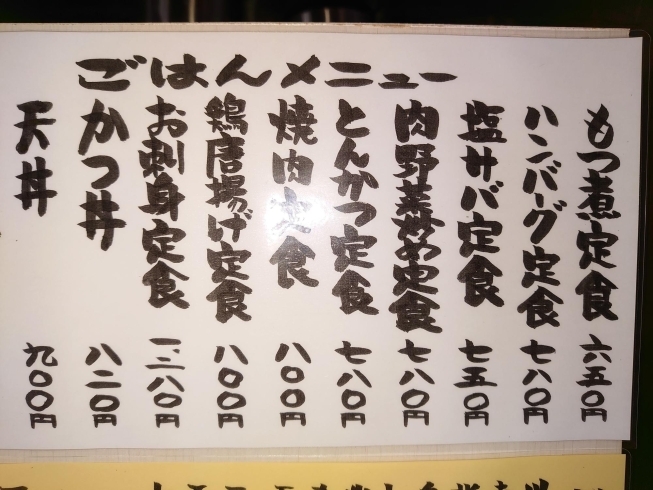 ごはんメニュー
もつ煮定食 六五〇円
ハンバーグ定食 七八〇円
塩サバ定食 七五〇円
肉野菜炒め定食 七八〇円
とんかつ定食 七八〇円
焼肉定食 八〇〇円
鶏唐揚げ定食 八〇〇円
お刺身定食 一、二八〇円
かつ丼 八二〇円
天丼 九〇〇円